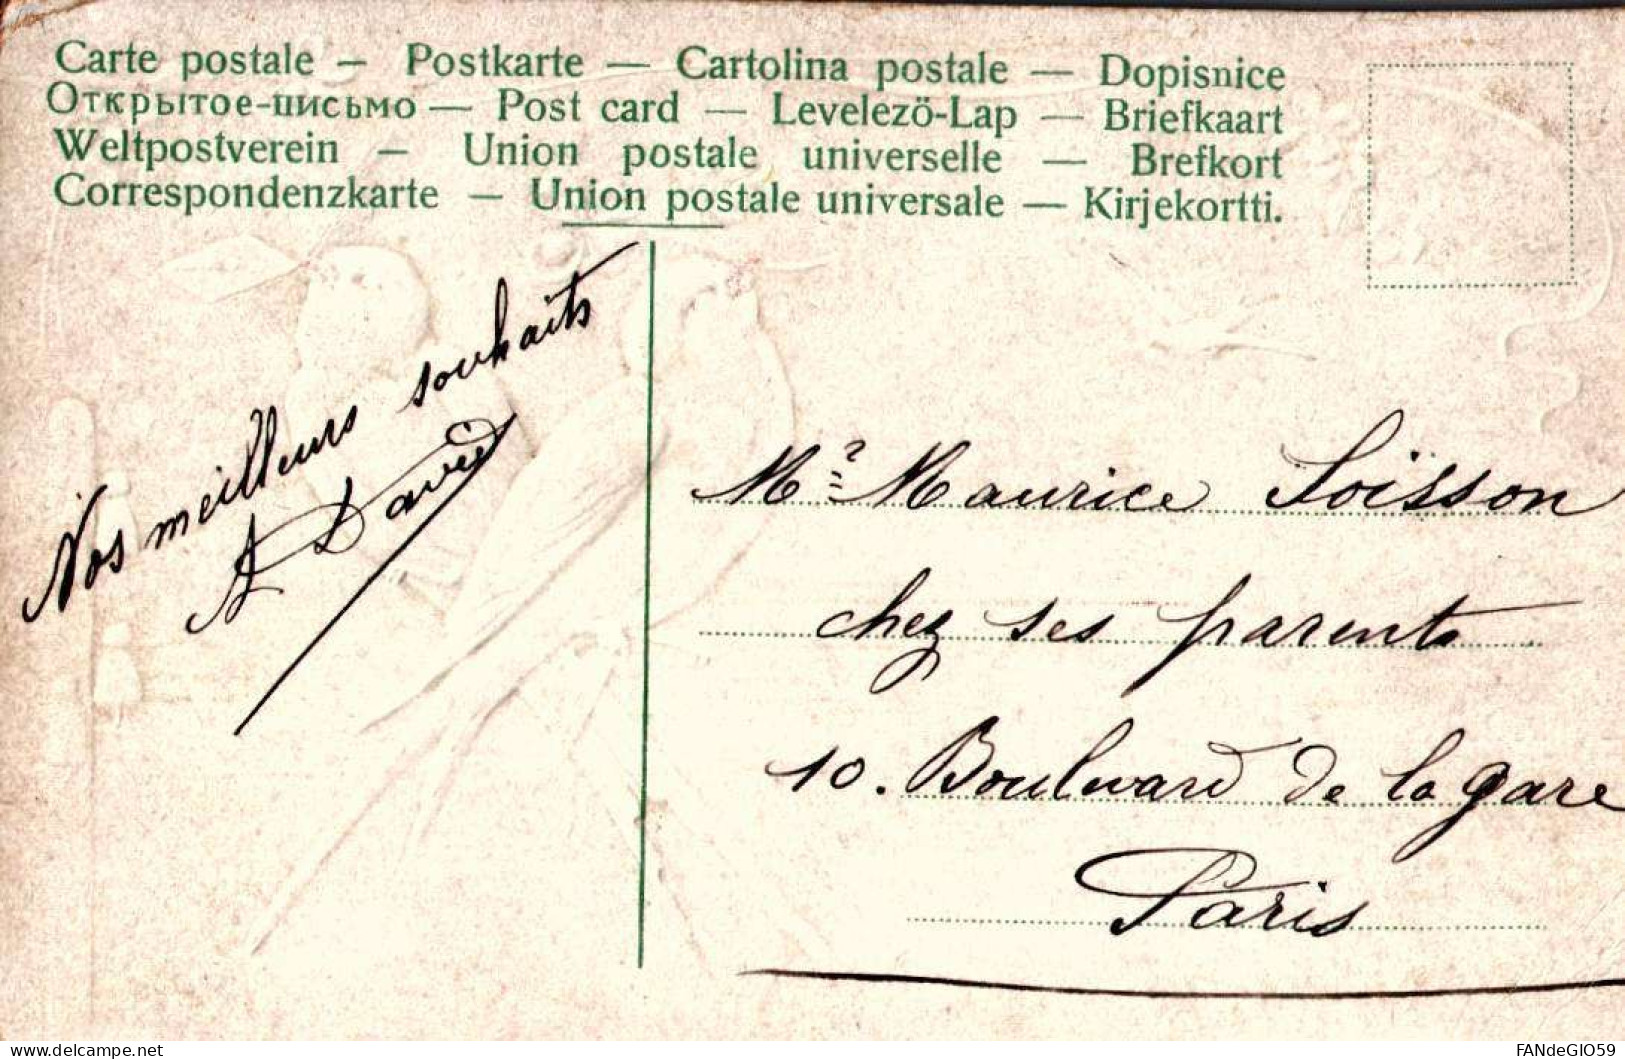 Carte postale — Postkarte — Cartolina postale — Dopisnice
Открытое-письмо — Post card — Levelezö-Lap — Briefkaart
Weltpostverein — Union postale universelle — Brefkort
Correspondenzkarte — Union postale universale — Kirjekortti.
Nos meilleurs souhaits
A David
Mr Maurice Soisson
chez ses parents
10. Boulevard de la gare
Paris
https://www.delcampe.net
FANdeGIO59